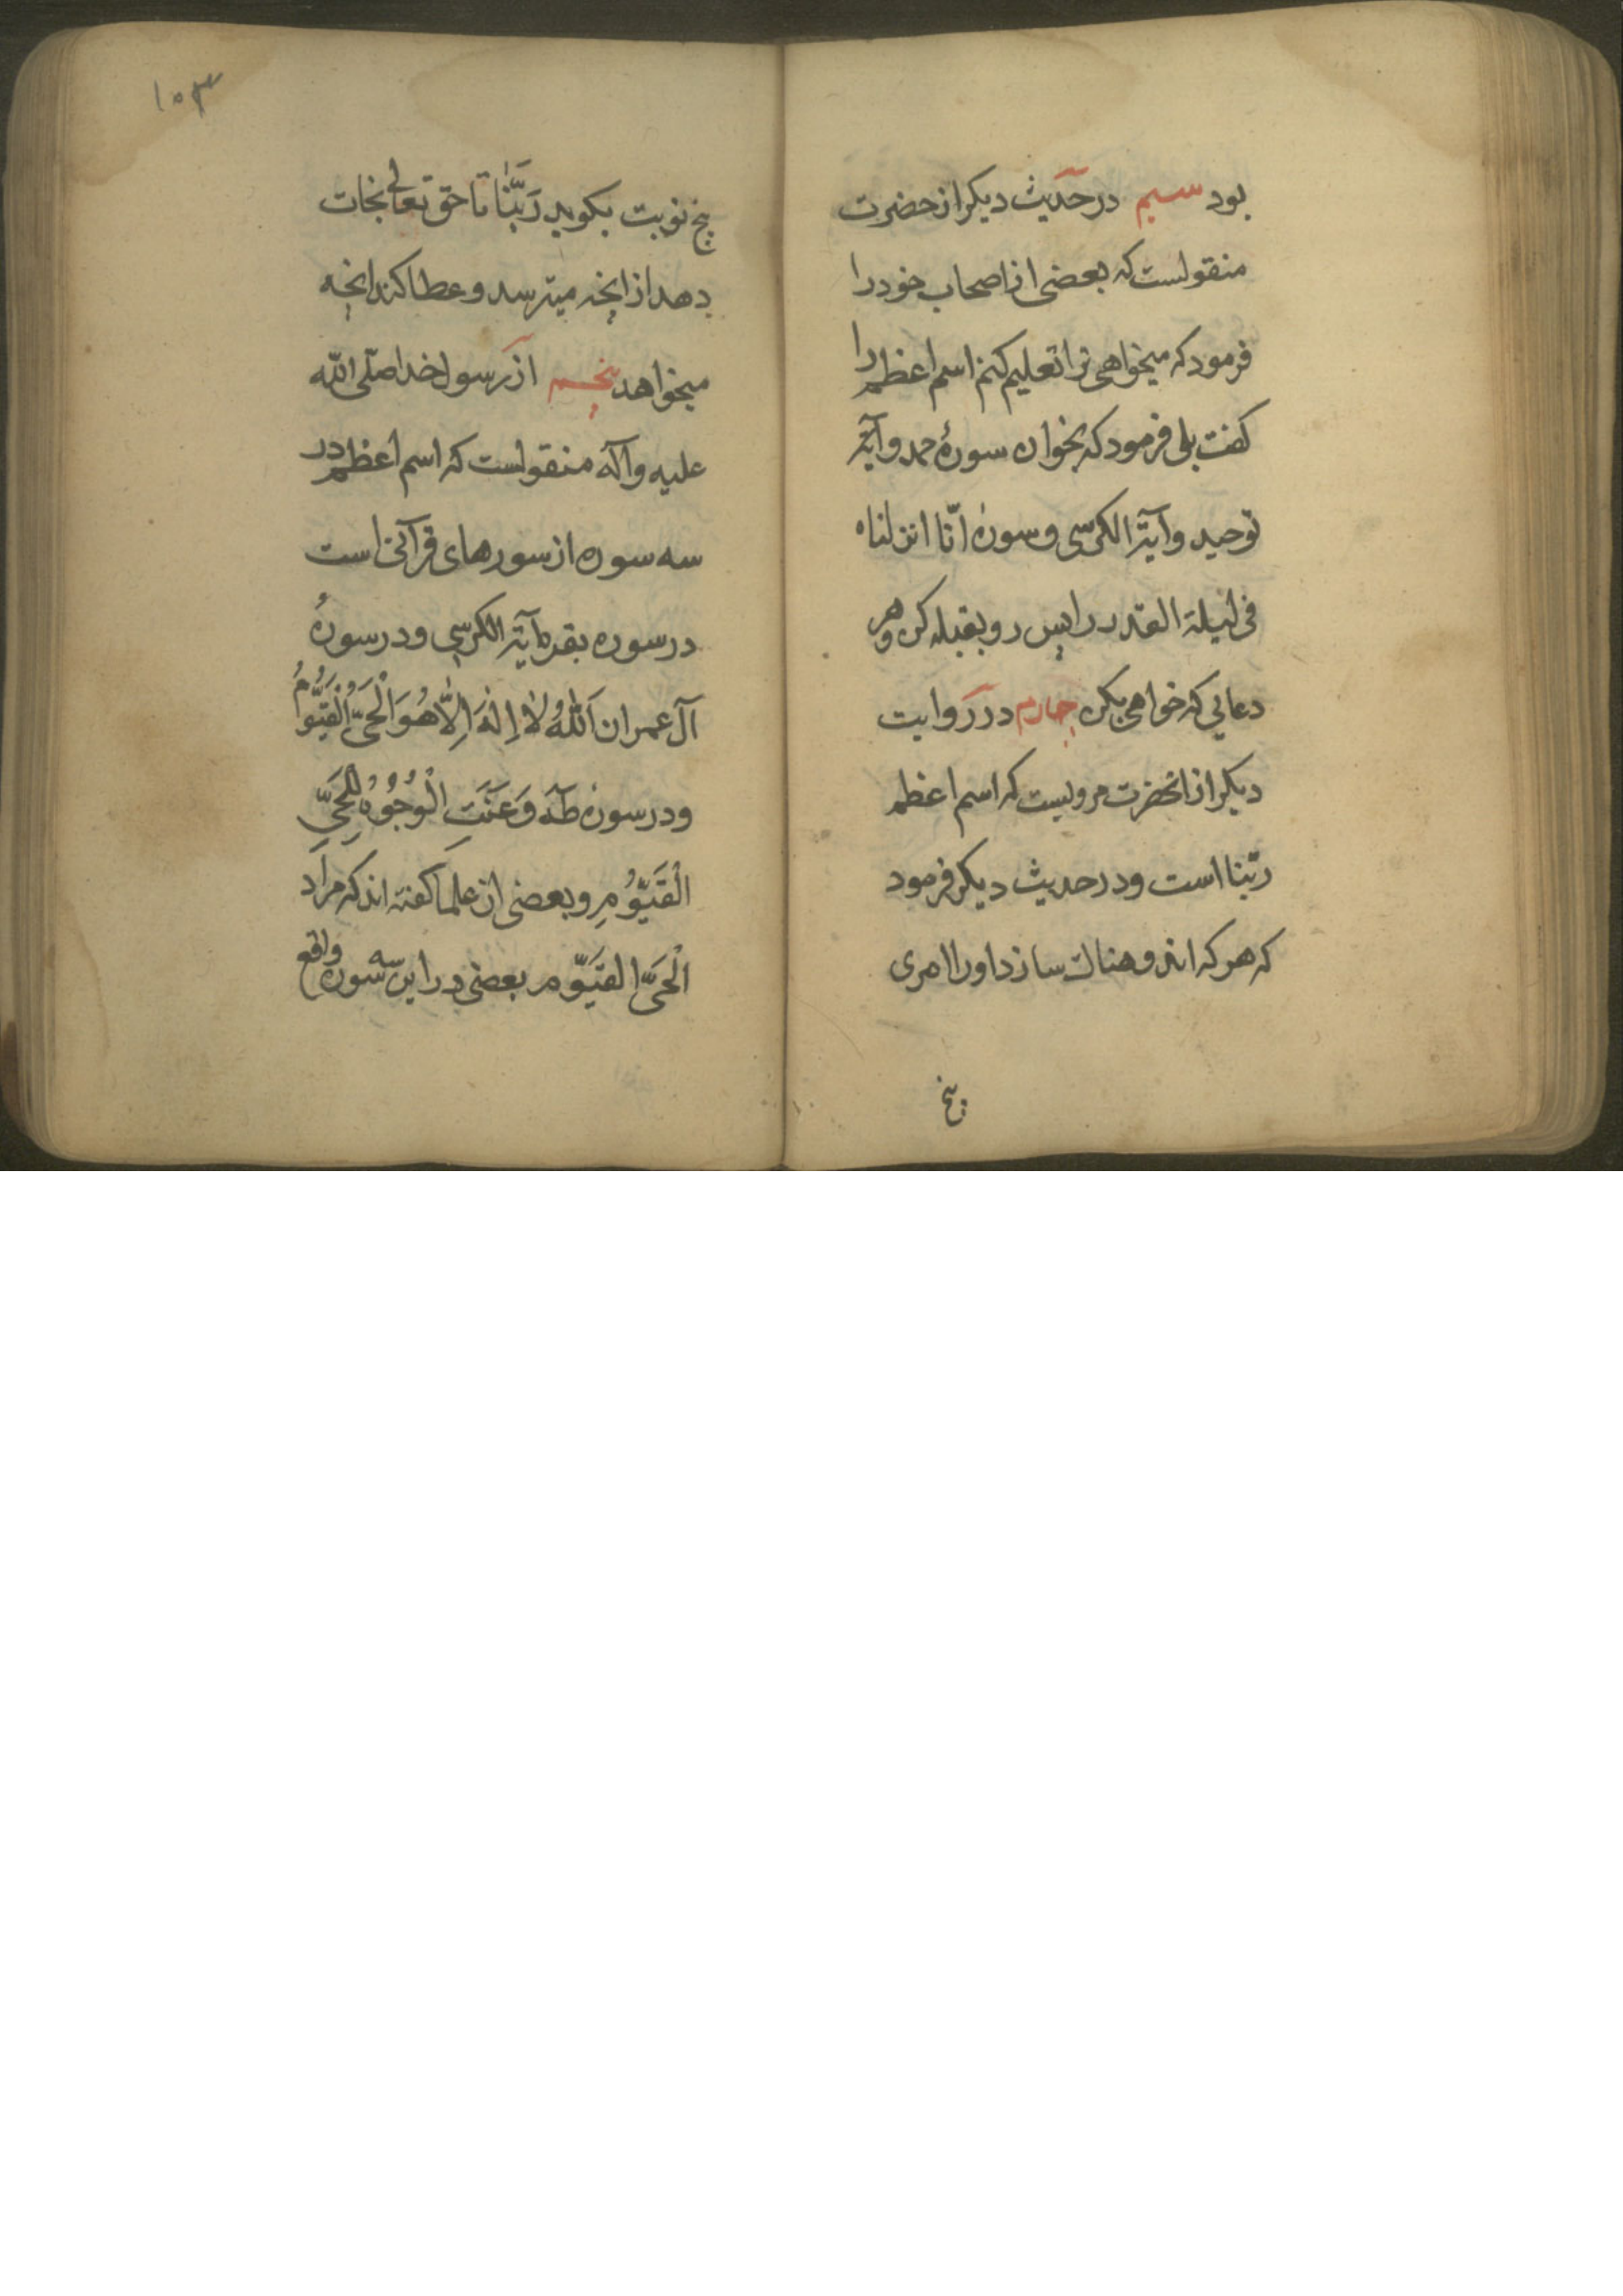 بود سیم در حدیث دیکر از حضرت
منقولست که بعضی از اصحاب خود را
فرمود که میخواهی ترا تعلیم کنم اسم اعظم را
کفت بلی فرمود که بخوان سورهٔ حمد و آیة
توحید و آیة الکرسی و سورهٔ انّا انزلناه
فی لیلة القدر را پس رو بقبله کن و هر
دعایی که خواهی بکن چهارم در روایت
دیکر از انحضرت مرویست که اسم اعظم
ربّنا است و در حدیث دیکر فرمود
که هر که اندوهناک سازد او را امری
پنج
۱۰۳
پنج نوبت بکوید رَبَّنٰا تا حق تعالی نجات
دهد از انچه میترسد و عطا کند انچه
میخواهد پنجم از رسول خدا صلّی اللّه
علیه و آله منقولست که اسم اعظم در
سه سوره از سورهای قرآنی است
در سوره بقره آیة الکرسی و در سورهٔ
آل عمران اَللّٰهُ لٰا اِلٰهَ اِلّٰا هُوَ الْحَیُّ الْقَیُّومُ
و در سورهٔ طٓه وَعَنَتِ الْوُجُوُهُ لِلْحَیِّ
الْقَیُّومِ و بعضی از علما کفته اند که مراد
الْحَیّ القَیّوم بعضی در این سه سوره واقع